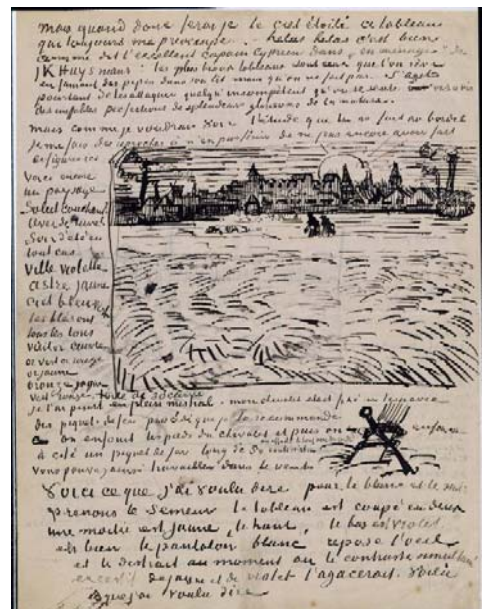 mais quand donc ferai je le ciel étoilé ce tableau
qui toujours me préoccupe. – helas helas c'est bien
comme dit l'excellent copain Cyprien dans „en ménage" de
J K Huysmans: les plus beaux tableaux sont ceux que l'on rêve
en fumant des pipes dans son lit mais qu'on ne fait pas. S'agit
pourtant de les attaquer quelqu'incompétent qu'on se sente vis à vis
des ineffables perfections de splendeurs glorieuses de la nature.
mais comme je voudrais voir l'étude que tu as fait au bordel
je me fais des reproches à n'en pas finir de ne pas encore avoir fait
de figures ici
Voici encore
un paysage
Soleil couchant
lever de lune
Soir d'été en
tout cas
Ville violette
astre jaune
ciel bleu vert
les blés ont
tous les tons
vieil or cuivre
or vert or rouge
or jaune
bronze jaune
vert rouge. toile de 30 carrée
je l'ai peint en plein mistral. mon chevalet était fixé en terre avec
des piquets de fer procédé que je te recommande
on enfonce les pieds du chevalet et puis on enfonce
à côté un piquet de fer long de 50 centimètres
on attache le tout avec des cordes
vous pouvez ainsi travailler dans le vent
Voici ce que j'ai voulu dire pour le blanc et le noir
prenons le Semeur le tableau est coupé en deux
une moitié est jaune, le haut, le bas est violet
eh bien le pantalon blanc repose l'oeil
et le distrait au moment où le contraste simultané
excessif de jaune et de violet l'agacerait. Voilà
ce que j'ai voulu dire